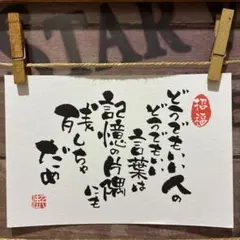 STAR
招福
どうでもいい人の
どうでもいい
言葉は
記憶の片隅
にも
残しちゃ
だめ